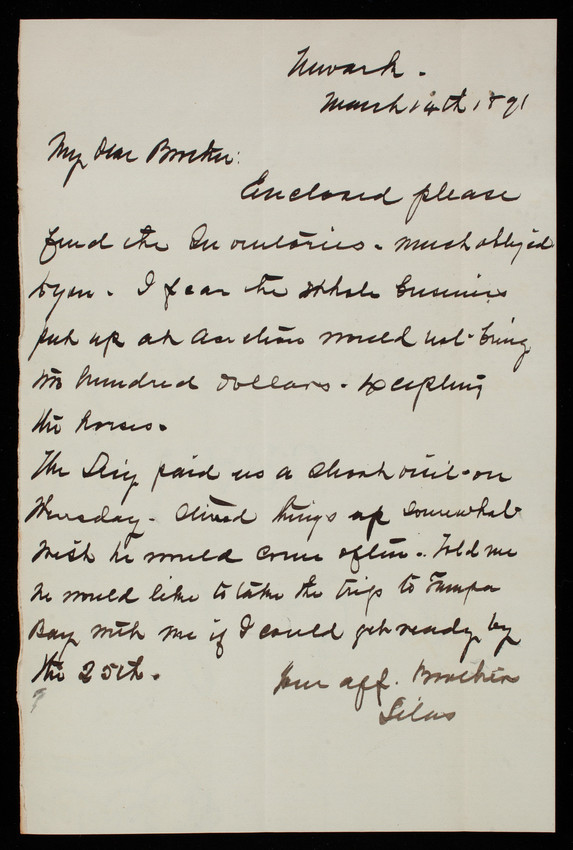 Newark.
March 14th 1891
My Dear Brother:
Enclosed please
find the Inventories. much obliged
to you. I fear the whole business
put up at Auction would not bring
two hundred dollars. Excepting
the horses.
The paid us a short visit on
Thursday. stired things up somewhat
wish he would come often. Told me
he would like to take the trip to Tampa
Bay with me if I could get ready by
the 25th.
Your aff. Brother
Silas